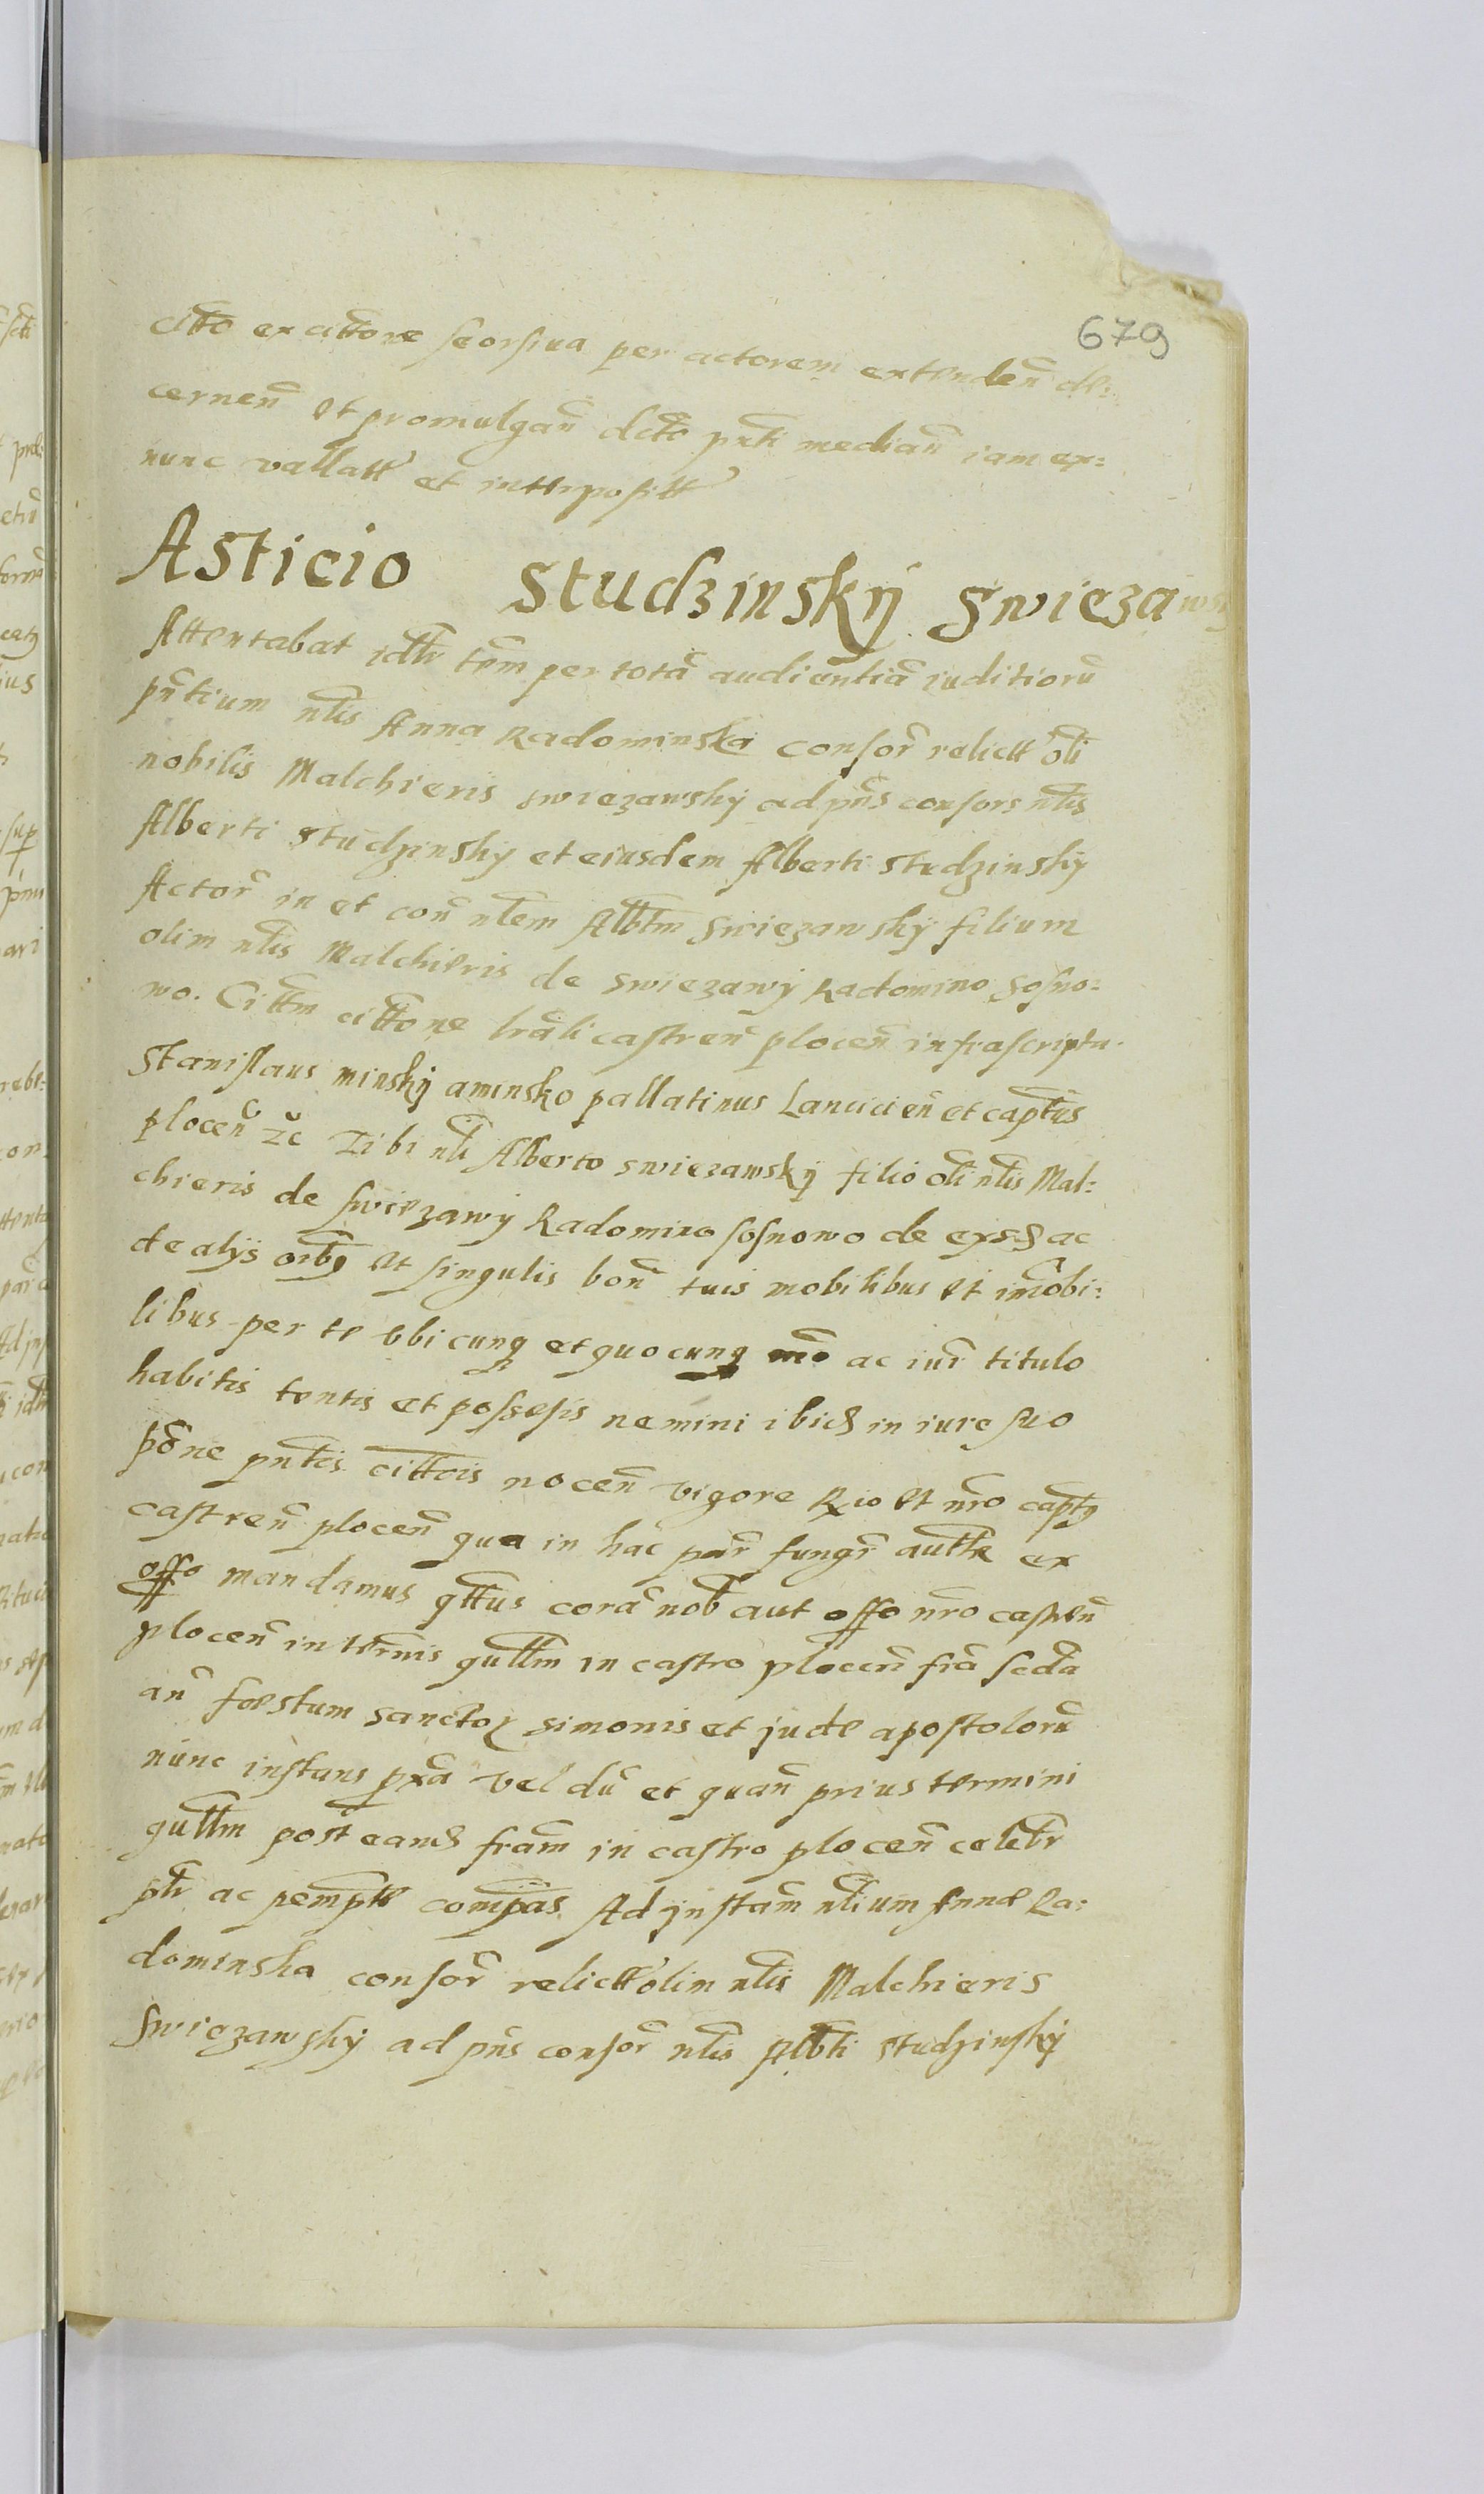 679
citto ex cittone seorsiva per actorem extenden̄ de:
cernen̄ et promulgan̄ dcto pn̄ti median̄ iam ex:
nunc vallatt et intterpositt
Asticio Studzinskÿ Swiezawsk
Attentabat idtr tm̄ per totā audientiā iuditiorū
pn̄tium nlis Anna Radominska consor̄ relictt oli
nobilis Malchieris swiezawskÿ ad pn̄s consors nlis
Alberti studzinskÿ et eiusdem Alberti studzinskÿ
Actor̄ in et con̄ nlem Albtm Swiezawskÿ filium
olim nlis Malchieris de swiezawÿ Radomino Sosno:
wo. Cittm cittone lrāli castren̄ plocen̄ infrascripta.
Stanislaus minskÿ aminsko pallatinus Lancicien̄ et captus
plocen̄ zc̄ Tibi nli Alberto swiezawskÿ filio oli nlis Mal:
chieris de swiezawÿ Radomino sosnowo de eisd ac
de alÿs oibq et singulis bon̄ tuis mobilibus et imobi:
libus per te vbicunq et quocunq mo ac iur̄ titulo
habitis tentis et possesis nemini ibid in iure suo
pōne pn̄tis cittois nocen̄ vigore Rio et nr̄o captq
castren̄ plocen̄ qua in hac par̄ fungr̄ autte ex
offo mandamus qttus corā nob̄ aut offo nr̄o castren̄
plocen̄ in termis qullm in castro plocen̄ frā scda
an̄ foestum sanctoꝝ simonis et jude apostolorū
nunc instans pxā vel dū et quan̄ prius termini
qullm post eand fram in castro plocen̄ celebr
ptr ac pempte compas Ad jnstam nlium Anne Ra:
dominska consor̄ relictt olim nlis Malchieris
Swiezawskÿ ad pn̄s consor̄ nlis Albti studzinskÿ